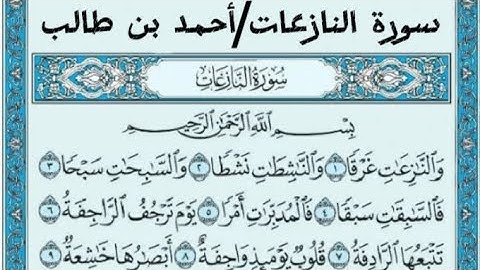 سورة النازعات/أحمد بن طالب
سُورَةُ النَّازِعَاتِ
بِسْمِ اللَّهِ الرَّحْمَٰنِ الرَّحِيمِ
وَالنَّازِعَاتِ غَرْقًا ١ وَالنَّاشِطَاتِ نَشْطًا ٢ وَالسَّابِحَاتِ سَبْحًا ٣
فَالسَّابِقَاتِ سَبْقًا ٤ فَالْمُدَبِّرَاتِ أَمْرًا ٥ يَوْمَ تَرْجُفُ الرَّاجِفَةُ ٦
تَتْبَعُهَا الرَّادِفَةُ ٧ قُلُوبٌ يَوْمَئِذٍ وَاجِفَةٌ ٨ أَبْصَارُهَا خَاشِعَةٌ ٩